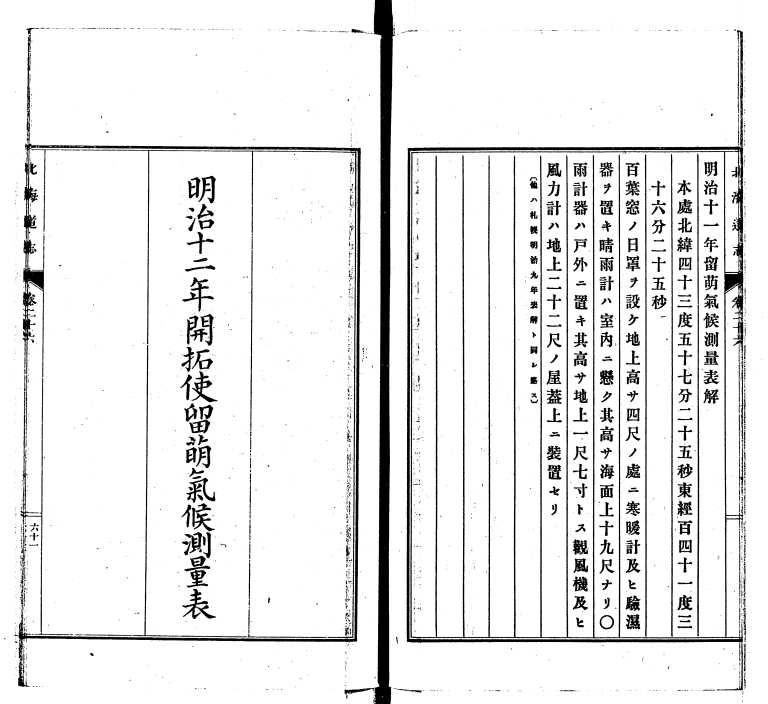 北海道志
卷二十六
明治十一年留萌氣候測量表解
本處北緯四十三度五十七分二十五秒東經百四十一度三
十六分二十五秒
百葉窓ノ日罩ヲ設ケ地上高サ四尺ノ處ニ寒暖計及ヒ驗濕
器ヲ置キ晴雨計ハ室內ニ懸ク其高サ海面上十九尺ナリ〇
雨計器ハ戶外ニ置キ其高サ地上一尺七寸トス觀風機及ヒ
風力計ハ地上二十二尺ノ屋蓋上ニ裝置セリ
(他ハ札幌明治九年表解ト同シ略ス)
明治十二年開拓使留萌氣候測量表
北海道志
卷二十六
六十一